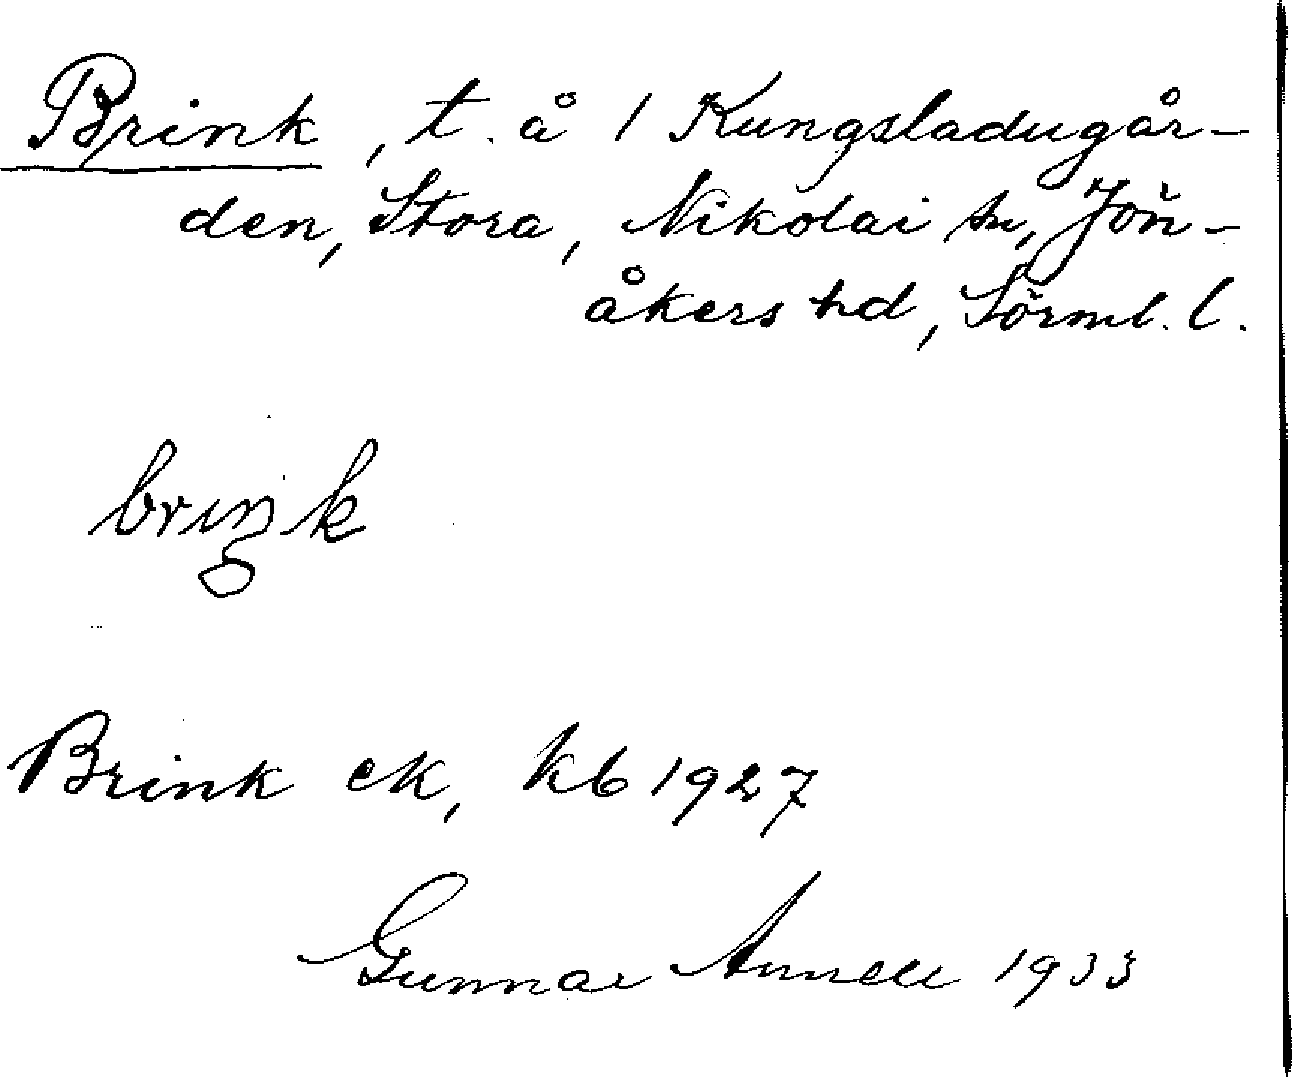 Brink, t. å 1 Kungsladugår-
den, Stora, Nikolai sn, Jön-
åkers hd, Sörml. l.
briŋk
Brink ek, kb 1927
Gunnar 1933